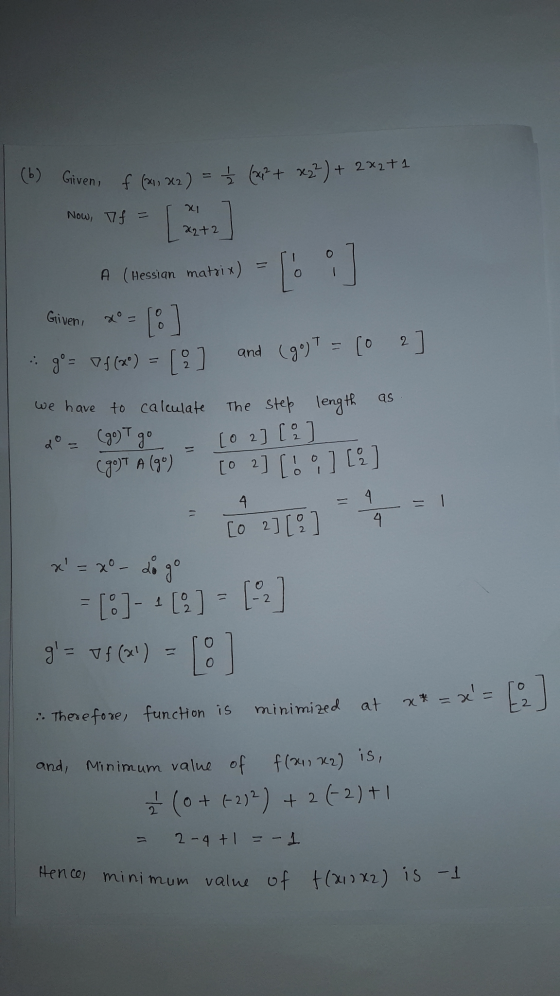 (b) Given, f(x₁, x₂) = ½ (x₁² + x₂²) + 2x₂+1
Now, ∇f = [x₁; x₂+2]
A (Hessian matrix) = [1 0; 0 1]
Given, x⁰ = [0; 0]
∴ g⁰ = ∇f(x⁰) = [0; 2] and (g⁰)ᵀ = [0 2]
we have to calculate The step length as
α⁰ = (g⁰)ᵀ g⁰ / (g⁰)ᵀ A (g⁰) = [0 2][0; 2] / [0 2][1 0; 0 1][0; 2]
= 4 / [0 2][0; 2] = 4/4 = 1
x¹ = x⁰ - α⁰ g⁰
= [0; 0] - 1 [0; 2] = [0; -2]
g¹ = ∇f(x¹) = [0; 0]
∴ Therefore, function is minimized at x* = x¹ = [0; -2]
and, Minimum value of f(x₁, x₂) is,
½ (0 + (-2)²) + 2(-2)+1
= 2-4+1 = -1
Hence, minimum value of f(x₁, x₂) is -1